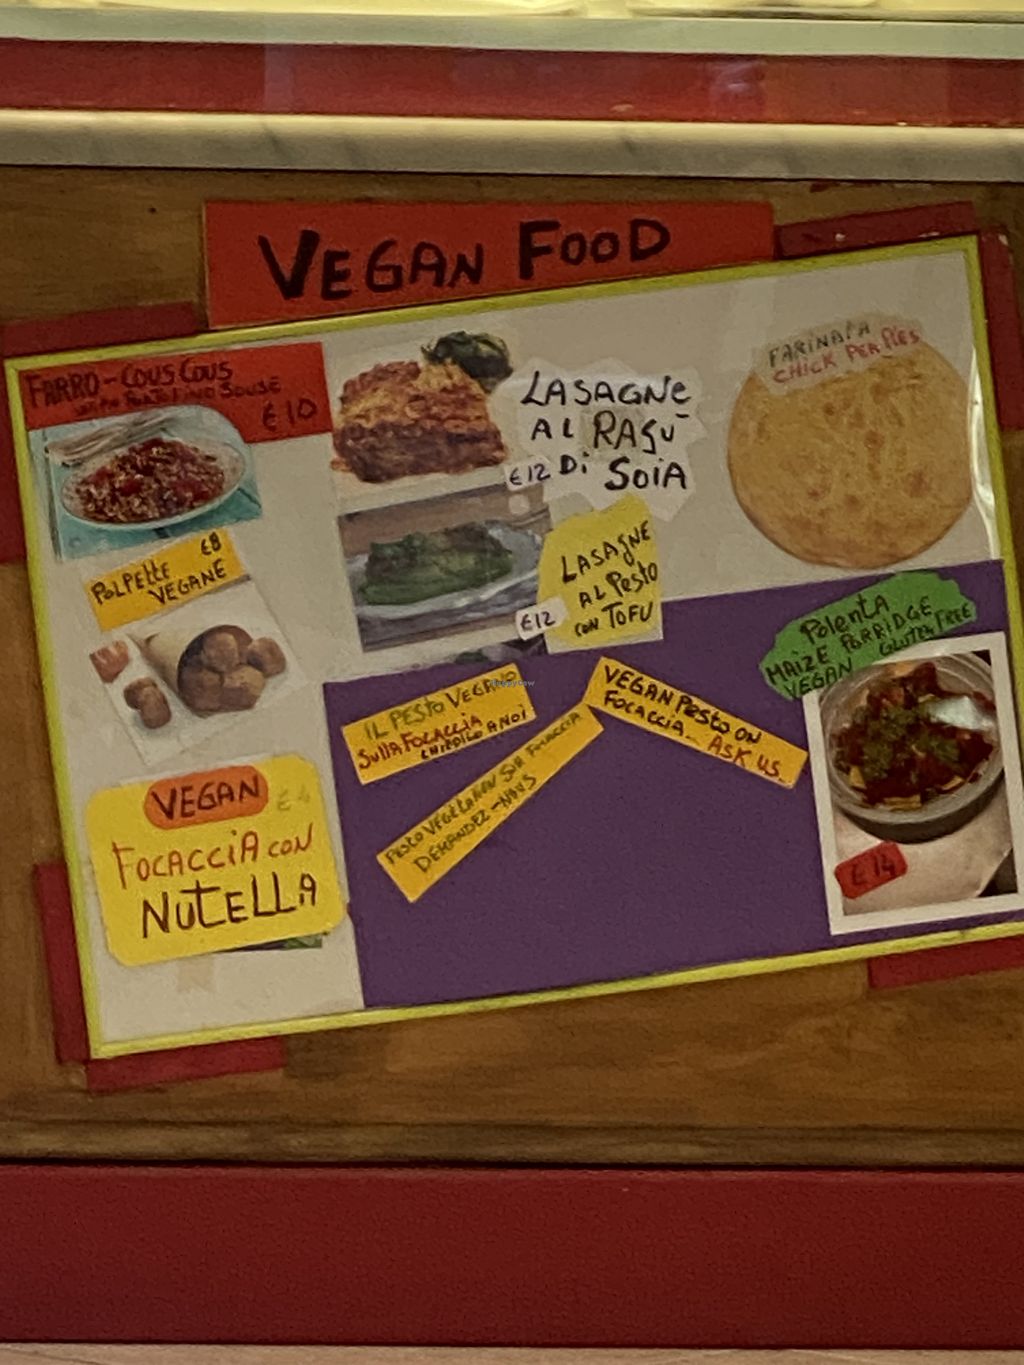 VEGAN FOOD
FARRO-COUS COUS
€10
LASAGNE
AL RAGÙ
€12 Di SOIA
FARINATA
CHICK PER PIES
€8
POLPETTE
VEGANE
LASAGNE
AL PESTO
CON TOFU
€12
Polenta
MAIZE PORRIDGE
VEGAN GLUTEN FREE
€14
IL PESTO VEGANO
SULLA FOCACCIA
CHIEDILO A NOI
VEGAN PESTO ON
FOCACCIA... ASK US...
PESTO VEGETARIEN SUR FOCACCIA
DEMANDEZ-NOUS
VEGAN
FOCACCIA CON
NUTELLA